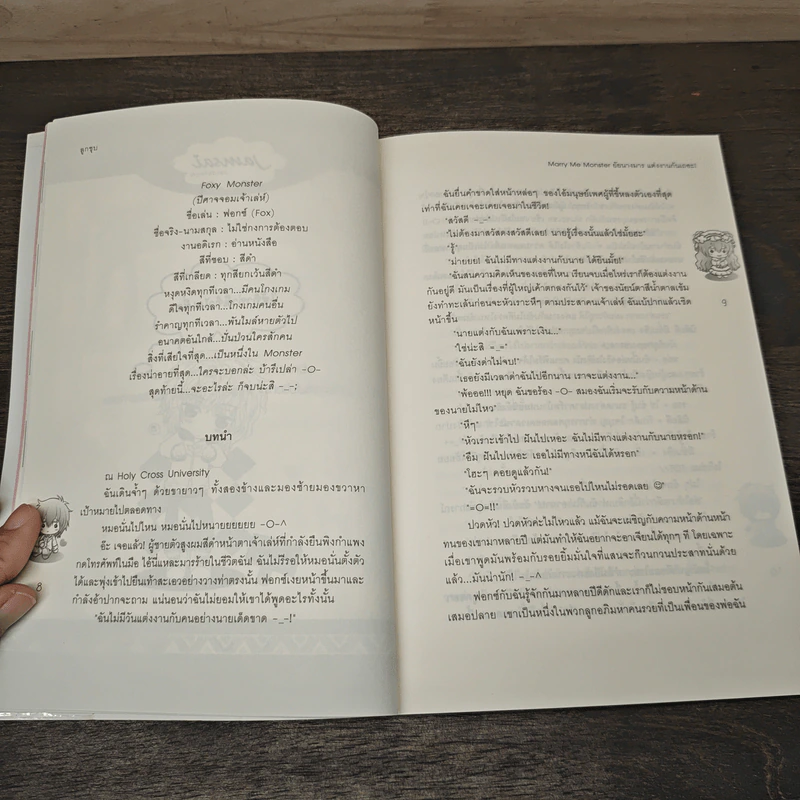 ลูกชุบ
Foxy Monster
(ปีศาจจอมเจ้าเล่ห์)
ชื่อเล่น : ฟอกซ์ (Fox)
ชื่อจริง-นามสกุล : ไม่ใช่กงการต้องตอบ
งานอดิเรก : อ่านหนังสือ
สีที่ชอบ : สีดำ
สีที่เกลียด : ทุกสียกเว้นสีดำ
หงุดหงิดทุกทีเวลา...มีคนโกงเกม
ดีใจทุกทีเวลา...โกงเกมคนอื่น
รำคาญทุกทีเวลา...พันไมล์หายตัวไป
อนาคตอันใกล้...ปั่นป่วนใครสักคน
สิ่งที่เสียใจที่สุด...เป็นหนึ่งใน Monster
เรื่องน่าอายที่สุด...ใครจะบอกล่ะ บ้ารึเปล่า -O-
สุดท้ายนี้...จะอะไรล่ะ ก็จบน่ะสิ -_-;
บทนำ
ณ Holy Cross University
ฉันเดินจ้ำๆ ด้วยขายาวๆ ทั้งสองข้างและมองซ้ายมองขวาหา
เป้าหมายไปตลอดทาง
หมอนั่นไปไหน หมอนั่นไปหนายยยยยย -O-^
อ๊ะ เจอแล้ว! ผู้ชายตัวสูงผมสีดำหน้าตาเจ้าเล่ห์ที่กำลังยืนพิงกำแพง
กดโทรศัพท์ในมือ ไอ้นี่แหละมารร้ายในชีวิตฉัน! ฉันไม่รีรอให้หมอนั่นตั้งตัว
ได้และพุ่งเข้าไปยืนเท้าสะเอวอย่างวางท่าตรงนั้น ฟอกซ์เงยหน้าขึ้นมาและ
กำลังอ้าปากจะถาม แน่นอนว่าฉันไม่ยอมให้เขาได้พูดอะไรทั้งนั้น
"ฉันไม่มีวันแต่งงานกับคนอย่างนายเด็ดขาด -_-!"
8
Marry Me Monster ยัยนางมาร แต่งงานกันเถอะ!
ฉันยื่นคำขาดใส่หน้าหล่อๆ ของไอ้มนุษย์เพศผู้ที่ขี้หลงตัวเองที่สุด
เท่าที่ฉันเคยเจอะเคยเจอมาในชีวิต!
"สวัสดี -_-"
"ไม่ต้องมาสวัสดงสวัสดีเลย! นายรู้เรื่องนั้นแล้วใช่มั้ยฮะ"
"รู้"
"ม่ายยย! ฉันไม่มีทางแต่งงานกับนาย ได้ยินมั้ย!"
"ฉันสนความคิดเห็นของเธอที่ไหน เรียนจบเมื่อไหร่เราก็ต้องแต่งงาน
กันอยู่ดี มันเป็นเรื่องที่ผู้ใหญ่เค้าตกลงกันไว้" เจ้าของนัยน์ตาสีน้ำตาลเข้ม
ยังทำทะเล้นก่อนจะหัวเราะหึๆ ตามประสาคนเจ้าเล่ห์ ฉันเบ้ปากแล้วเชิด
หน้าขึ้น
"นายแต่งกับฉันเพราะเงิน..."
"ใช่น่ะสิ =_="
"ฉันยังด่าไม่จบ!"
"เธอยังมีเวลาด่าฉันไปอีกนาน เราจะแต่งงาน..."
"พ้ออ!!! หยุด ฉันขอร้อง -O- สมองฉันเริ่มจะรับกับความหน้าด้าน
ของนายไม่ไหว"
"หึๆ"
"หัวเราะเข้าไป ฝันไปเหอะ ฉันไม่มีทางแต่งงานกับนายหรอก!"
"อืม ฝันไปเหอะ เธอไม่มีทางหนีฉันได้หรอก"
"โฮะๆ คอยดูแล้วกัน!"
"ฉันจะรวบหัวรวบหางจนเธอไปไหนไม่รอดเลย ☺"
"=O=!!"
ปวดหัว! ปวดหัวค่ะไม่ไหวแล้ว แม้ฉันจะเผชิญกับความหน้าด้านหน้า
ทนของเขามาหลายปี แต่มันทำให้ฉันอยากจะอาเจียนได้ทุกๆ ที โดยเฉพาะ
เมื่อเขาพูดมันพร้อมกับรอยยิ้มมั่นใจที่แสนจะก๊วนกวนประสาทนั่นด้วย
แล้ว...มันน่านัก! -_-^
ฟอกซ์กับฉันรู้จักกันมาหลายปีดีดักและเราก็ไม่ชอบหน้ากันเสมอต้น
เสมอปลาย เขาเป็นหนึ่งในพวกลูกอภิมหาคนรวยที่เป็นเพื่อนของพ่อฉัน
9